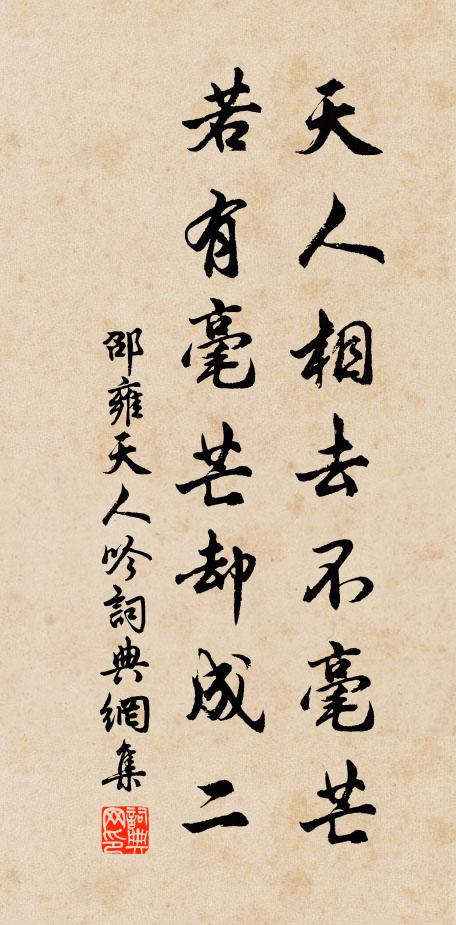 天人相去不毫芒
若有毫芒却成二
邵雍天人吟詞典網集
詞典网印